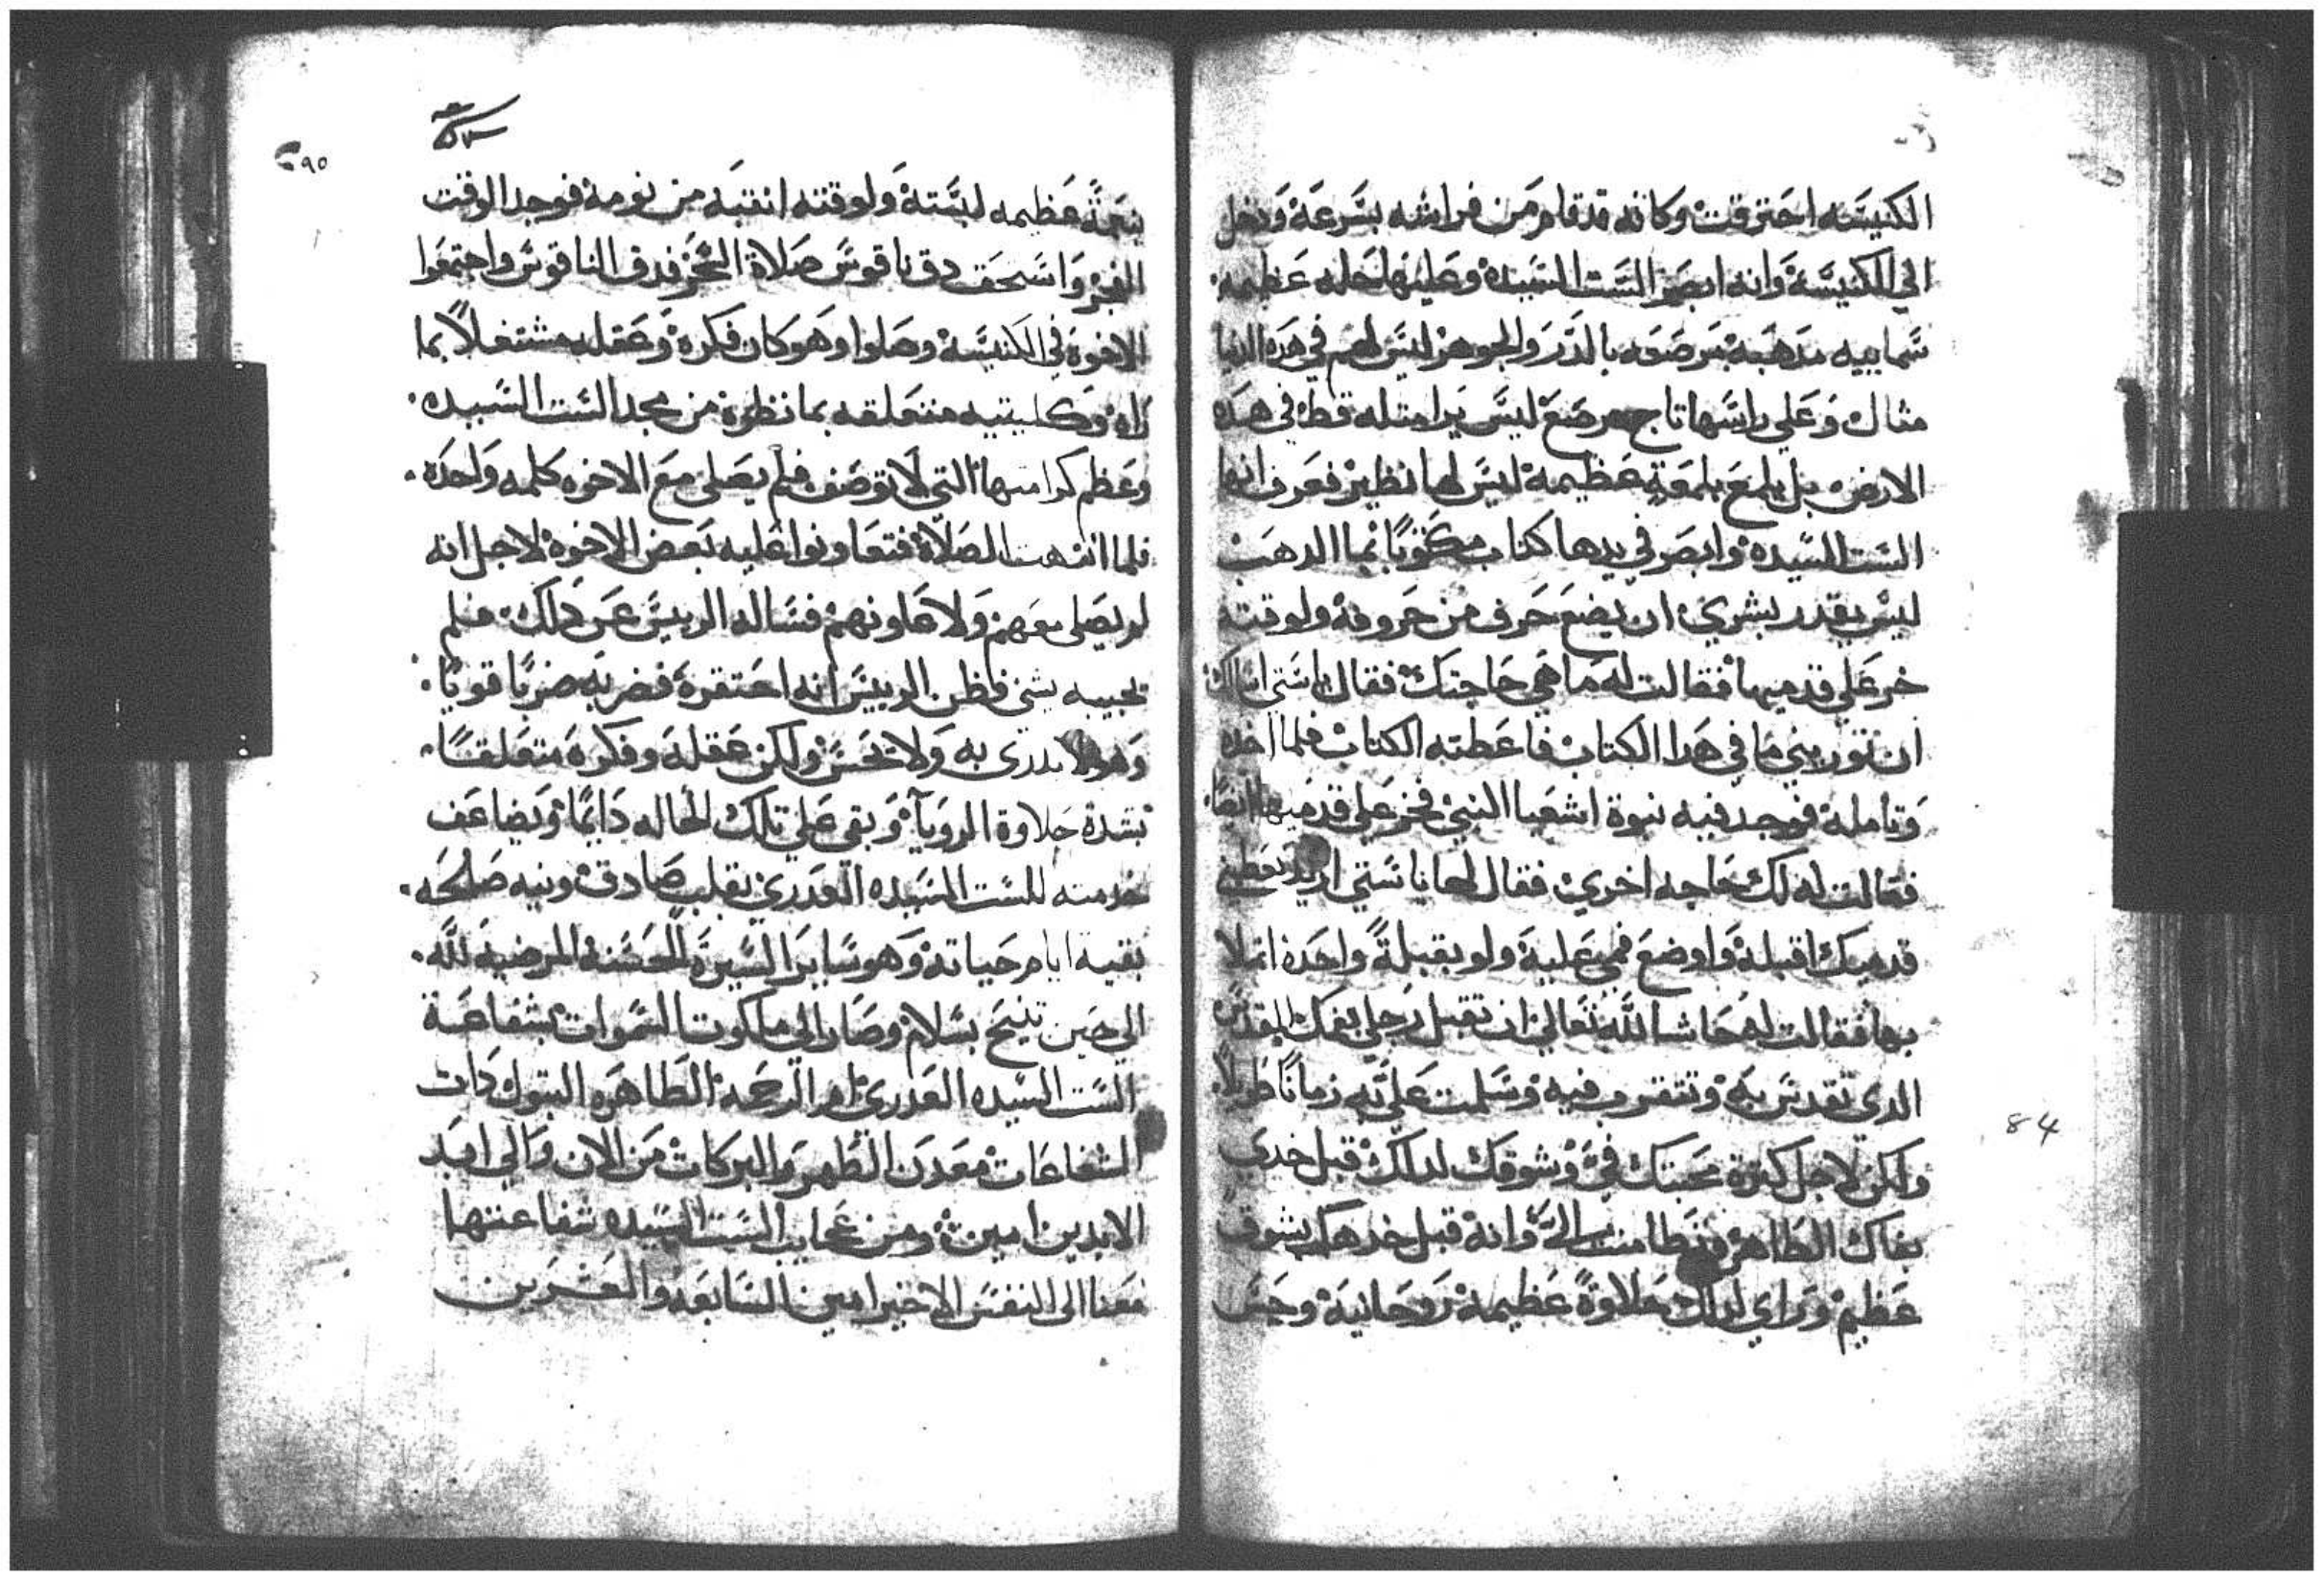 الكنيسه احترقت وكانه قد قام من فراشه بسرعة ودخل
الي الكنيسة وانه ابصر الست السيده وعليها حله عظيمه
سماييه مدهبة مرصعه بالدر والجوهر ليس لهم في هده الدنيا
مثال وعلي راسها تاج مرصع ليس يرا مثله قط في هده
الارض بل يلمع بلمعة عظيمة ليس لها نظير فعرف انها
الست السيدة وابصر في يدها كتاب مكتوبا بما الدهب
ليس يقدر بشري ان يضع حرف من حروفه ولوقته
خر علي قدميها فقالت له ما هي حاجتك فقال يا ستي اسالك
ان توريني ما في هدا الكتاب فاعطته الكتاب فلما اخده
وتامله فوجد فيه نبوة اشعيا النبي فخر علي قدميها ايضا
فقالت له لك حاجه اخري فقال لها يا ستي اريد تعطيني
قدميك اقبله واوضع فمي عليه ولو بقبلة واحدة اتملا
بها فقالت له حاشا لله تعالي ان تقبل رجلي بفمك المقدس
الدي تقدس به وتتقرب فيه وسلمت علي به زمانا طويلا
ولكن لاجل كترة محبتك في وشوقك لدلك قبل خدي
بفاك الطاهر وتطامنت الي وانه قبل خدها بشوق
عظيم وراي لدلك حلاوة عظيمة روحانية وحس
٩٥
بنعمة عظيمه لبسته ولوقته انتبه من نومه فوجد الوقت
الفجر واستحق دق ناقوس صلاة الفجر فدق الناقوس واجتمعوا
الاخوة في الكنيسة وصلوا وهو كان فكره وعقله مشتغلا بما
راه وكليتيه متعلقه بما نظره من مجد الست السيده
وعظم كرامتها التي لا توصف فلم يصلي مع الاخوه كلمه واحدة
فلما انتهت الصلاة فتعاونوا عليه بعض الاخوة لاجل انه
لم يصلي معهم ولا عاونهم فساله الرييس عن دلك فلم
يجيبه بشي فظن الرييس انه احتقره فضربه ضربا قويا
وهو لا يدري به ولا يحس ولكن عقله وفكره متعلقا
بشدة حلاوة الرويا وبقي علي تلك الحاله دايما ويضاعف
خدمته للست السيده العدري بقلب صادق ونيه صالحه
بقية ايام حياته وهو ساير السيرة الحسنة المرضية لله
الي حين تنيح بسلام وصار الي ملكوت السموات بشفاعة
الست السيده العدري ام الرحمه الطاهره البتول دات
الشفاعات معدن الطهر والبركات من الان والي ابد
الابدين امين ومن عجايب الست السيده شفاعتها
معنا الي النفس الاخير امين السابعة والعشرين
84